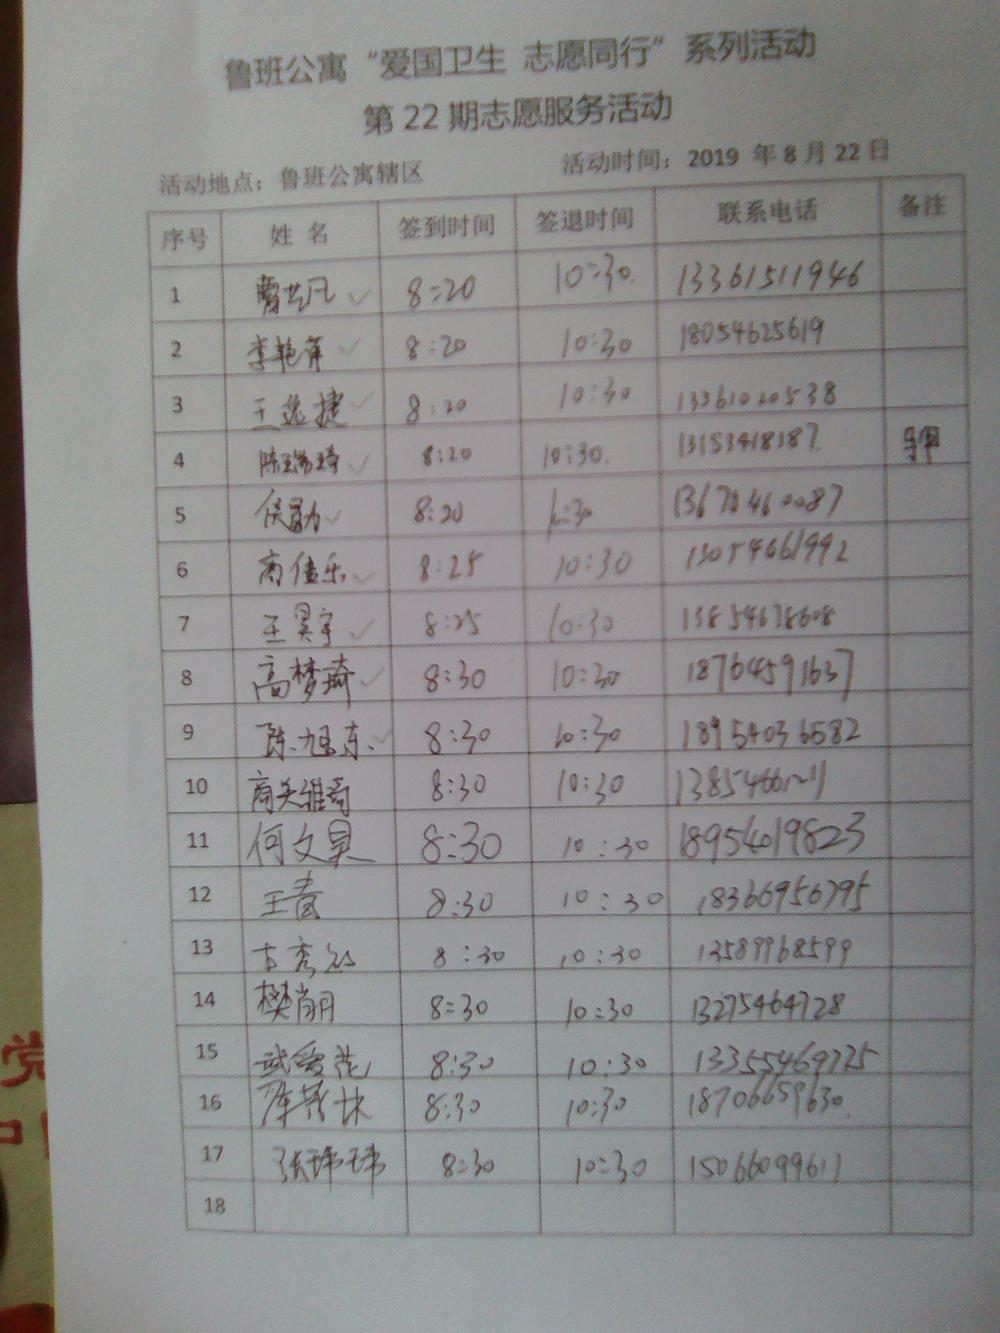 鲁班公寓“爱国卫生 志愿同行”系列活动
第 22 期志愿服务活动
活动地点：鲁班公寓辖区 活动时间：2019 年 8 月 22 日
序号 姓 名 签到时间 签退时间 联系电话 备注
1 8:20 10:30. 13361511946
2 李艳萍 ✓ 8:20 10:30 18054625619
3 王逸捷 ✓ 8:20 10:30 13361020538
4 陈瑞琦 ✓ 8:20 10:30. 13153418387.
5 ✓ 8:20 10:30
6 高佳乐 ✓ 8:25 10:30 13054661992
7 王昊宇 ✓ 8:25 10:30 13854678608
8 高梦琦 ✓ 8:30 10:30 18764591637
9 陈旭东 ✓ 8:30 10:30 18954036582
10 8:30 10:30
11 何文昊 8:30 10:30 18954019823
12 8:30 10:30 18366956795
13 8:30 10:30 13589968599
14 樊 8:30 10:30 13275464728
15 武爱花 8:30 10:30 13355469725
16 8:30 10:30 18706659630
17 张玮玮 8:30 10:30 15066099611
18
党